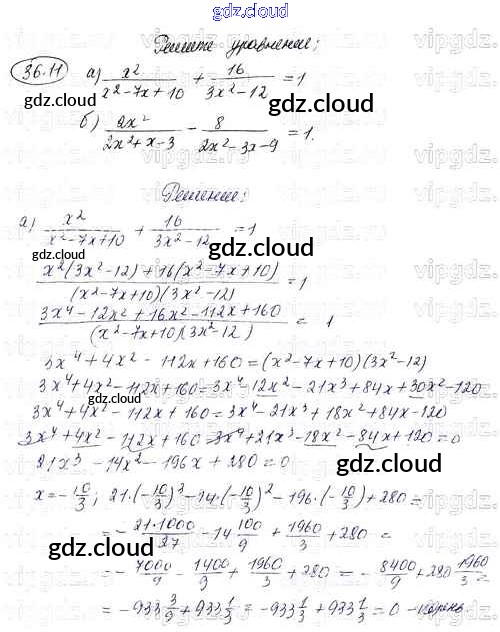 gdz.cloud
Решите уравнение:
36.11 а) x²/(x²-7x+10) + 16/(3x²-12) = 1
gdz.cloud gdz.cloud
б) 2x²/(2x²+x-3) - 8/(2x²-3x-9) = 1.
Решение:
а) x²/(x²-7x+10) + 16/(3x²-12) = 1
gdz.cloud
(x²(3x²-12)+16(x²-7x+10))/((x²-7x+10)(3x²-12)) = 1
(3x⁴-12x²+16x²-112x+160)/((x²-7x+10)(3x²-12)) = 1
gdz.cloud
3x⁴+4x²-112x+160=(x²-7x+10)(3x²-12)
3x⁴+4x²-112x+160=3x⁴-12x²-21x³+84x+30x²-120
gdz.cloud gdz.cloud
3x⁴+4x²-112x+160=3x⁴-21x³+18x²+84x-120
3x⁴+4x²-112x+160-3x⁴+21x³-18x²-84x+120=0
gdz.cloud
21x³-14x²-196x+280=0
gdz.cloud
x=-10/3; 21·(-10/3)³-14·(-10/3)²-196·(-10/3)+280=
=-21·1000/27-14 100/9+1960/3+280=
gdz.cloud
=-7000/9-1400/9+1960/3+280=-8400/9+280 1960/3=
gdz.cloud
=-933 3/9+933 1/3=-933 1/3+933 1/3=0-корень
gdz.cloud